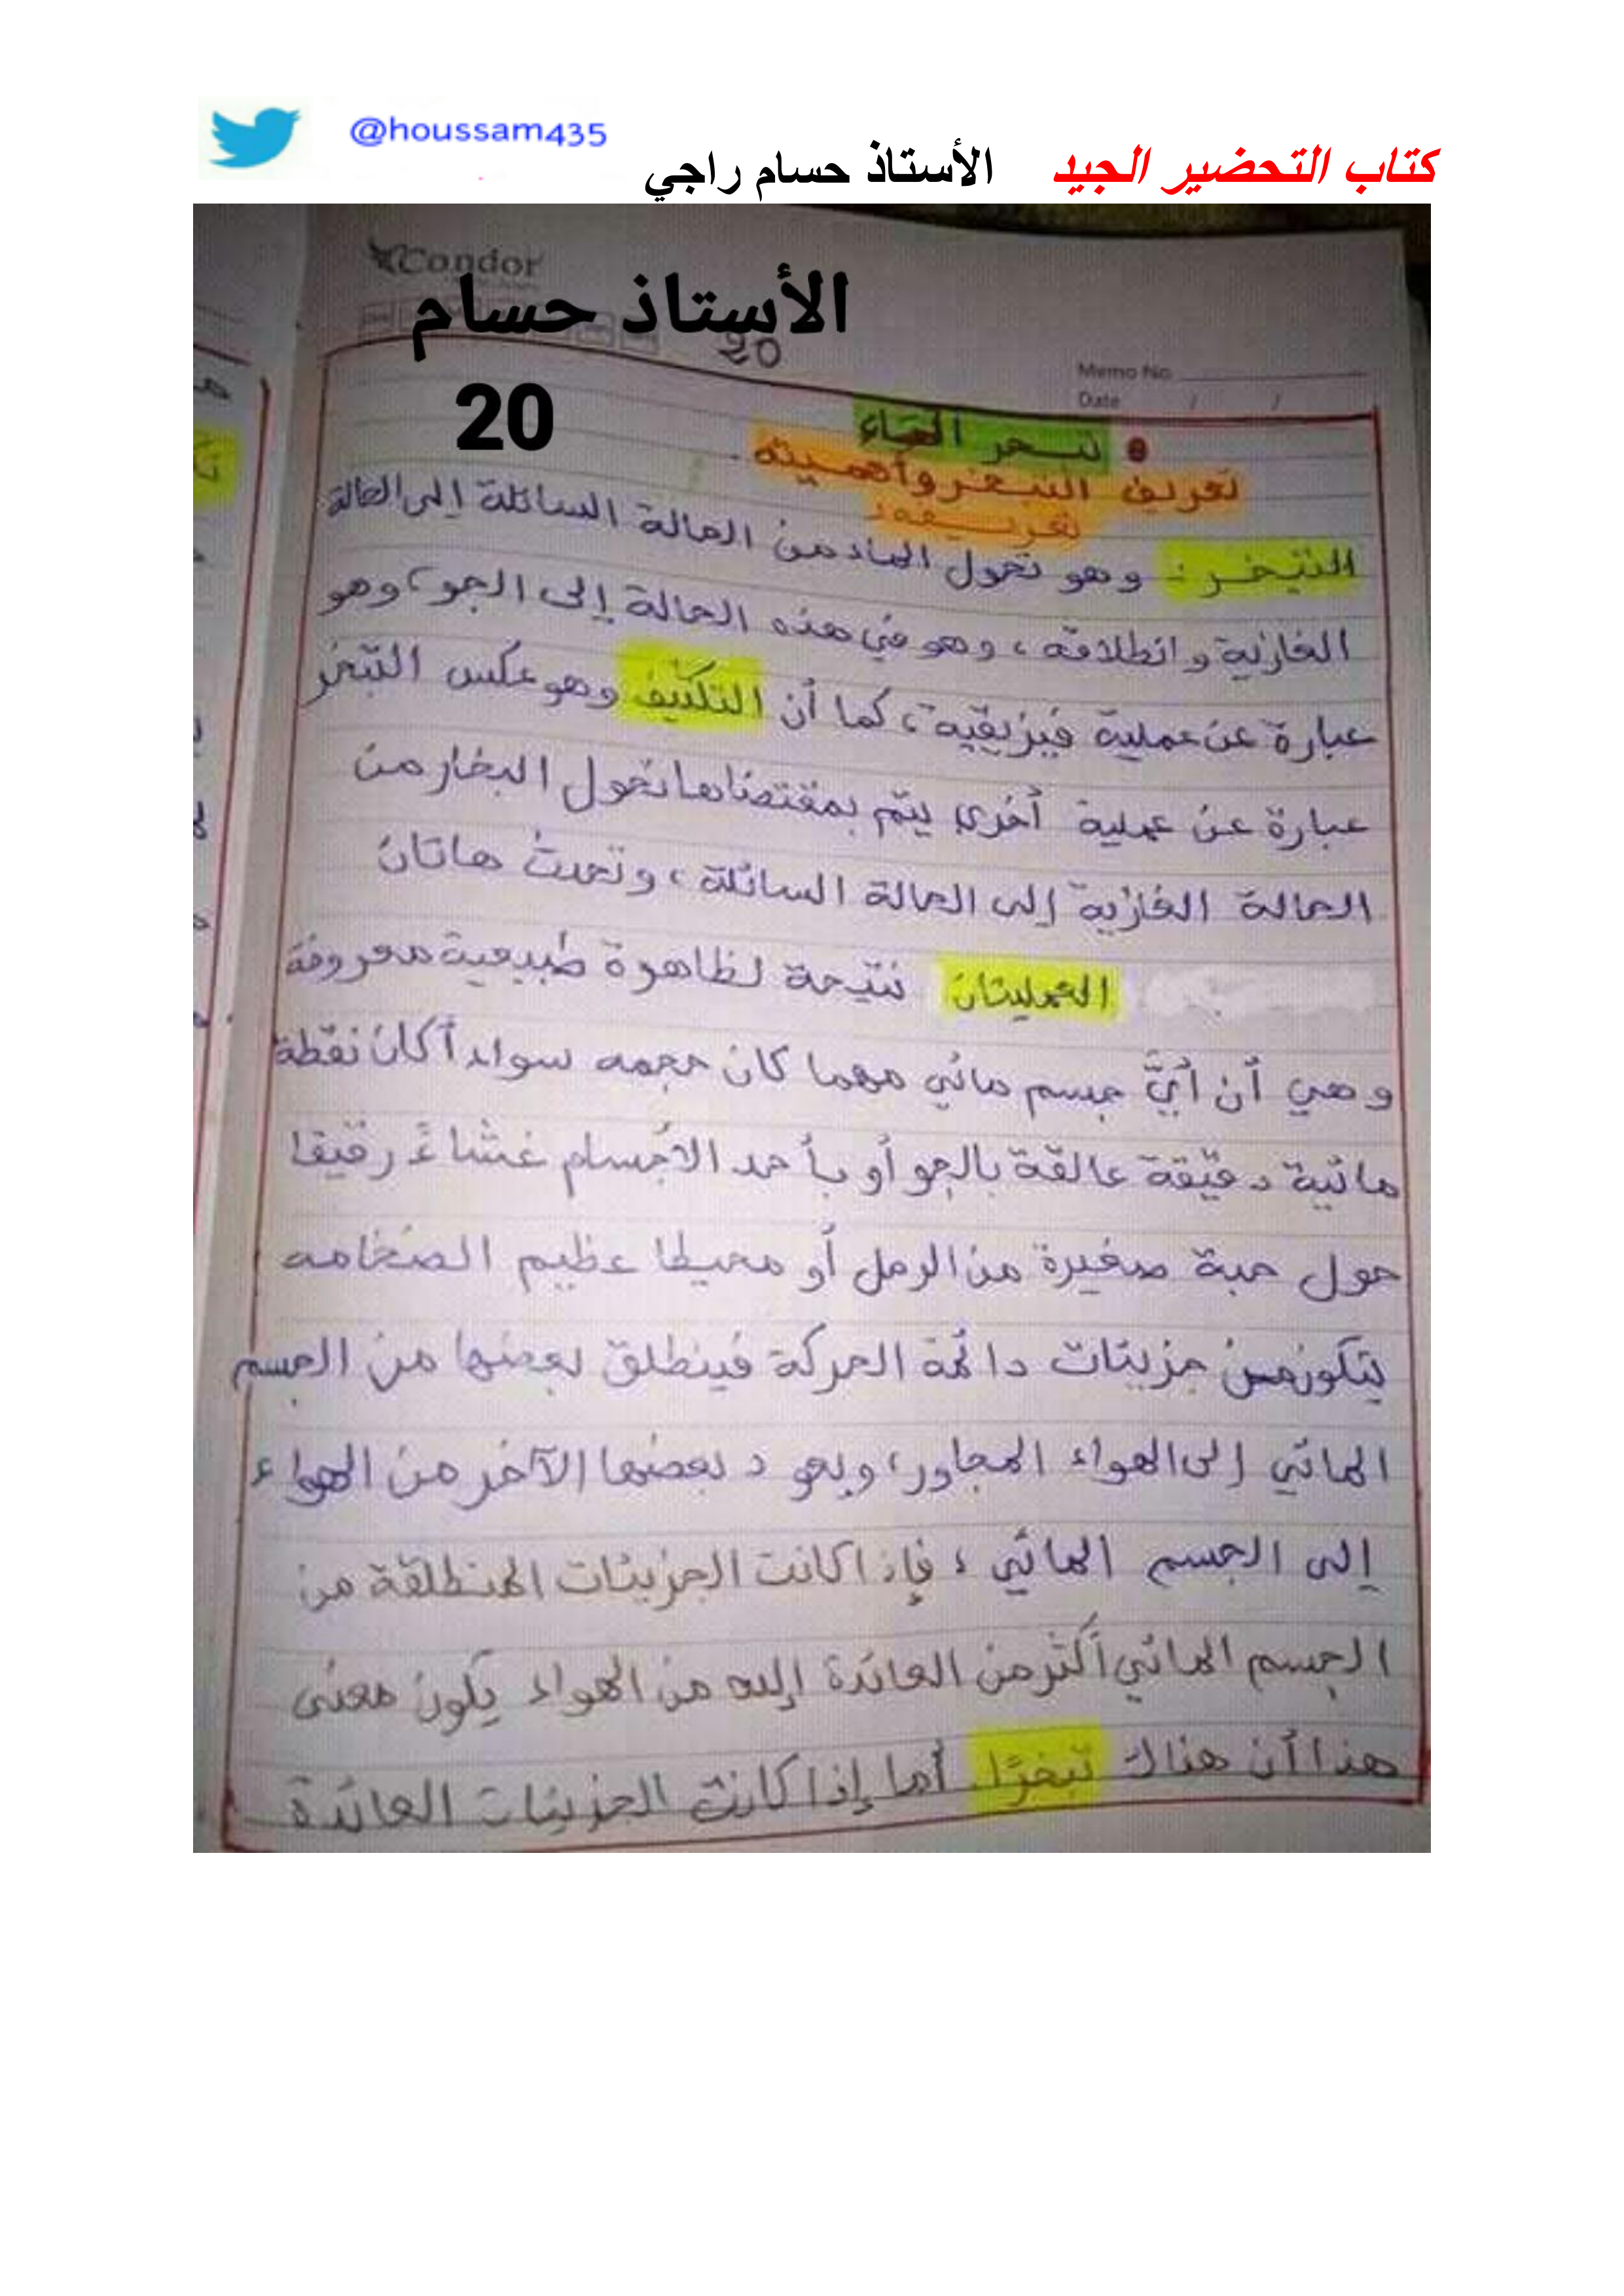 @houssam435
كتاب التحضير الجيد الأستاذ حسام راجي
Condor
الأستاذ حسام
20
20
Memo No
Date / /
تبخر الماء
تعريف التبخر وأهميته.
تعريفه:
التبخر: وهو تحول الماء من الحالة السائلة إلى الحالة
الغازية وانطلاقه، وهو في هذه الحالة إلى الجو، وهو
عبارة عن عملية فيزيقية، كما أن التكثيف وهو عكس التبخر
عبارة عن عملية أخرى يتم بمقتضاها تحول البخار من
الحالة الغازية إلى الحالة السائلة، وتحدث هاتان
العمليتان نتيجة لظاهرة طبيعية معروفة
وهي أن أيَّ جسم مائي مهما كان حجمه سواء أكان نقطة
مائية دقيقة عالقة بالجو أو بأحد الأجسام غشاءً رقيقا
حول حبة صغيرة من الرمل أو محيطا عظيم الضخامه
يتكون من جزيئات دائمة الحركة فينطلق بعضها من الجسم
المائي إلى الهواء المجاور، ويعود بعضها الآخر من الهواء
إلى الجسم المائي، فإذا كانت الجزيئات المنطلقة من
الجسم المائي أكثر من العائدة إليه من الهواء يكون معنى
هذا أن هناك تبخرًا. أما إذا كانت الجزيئات العائدة